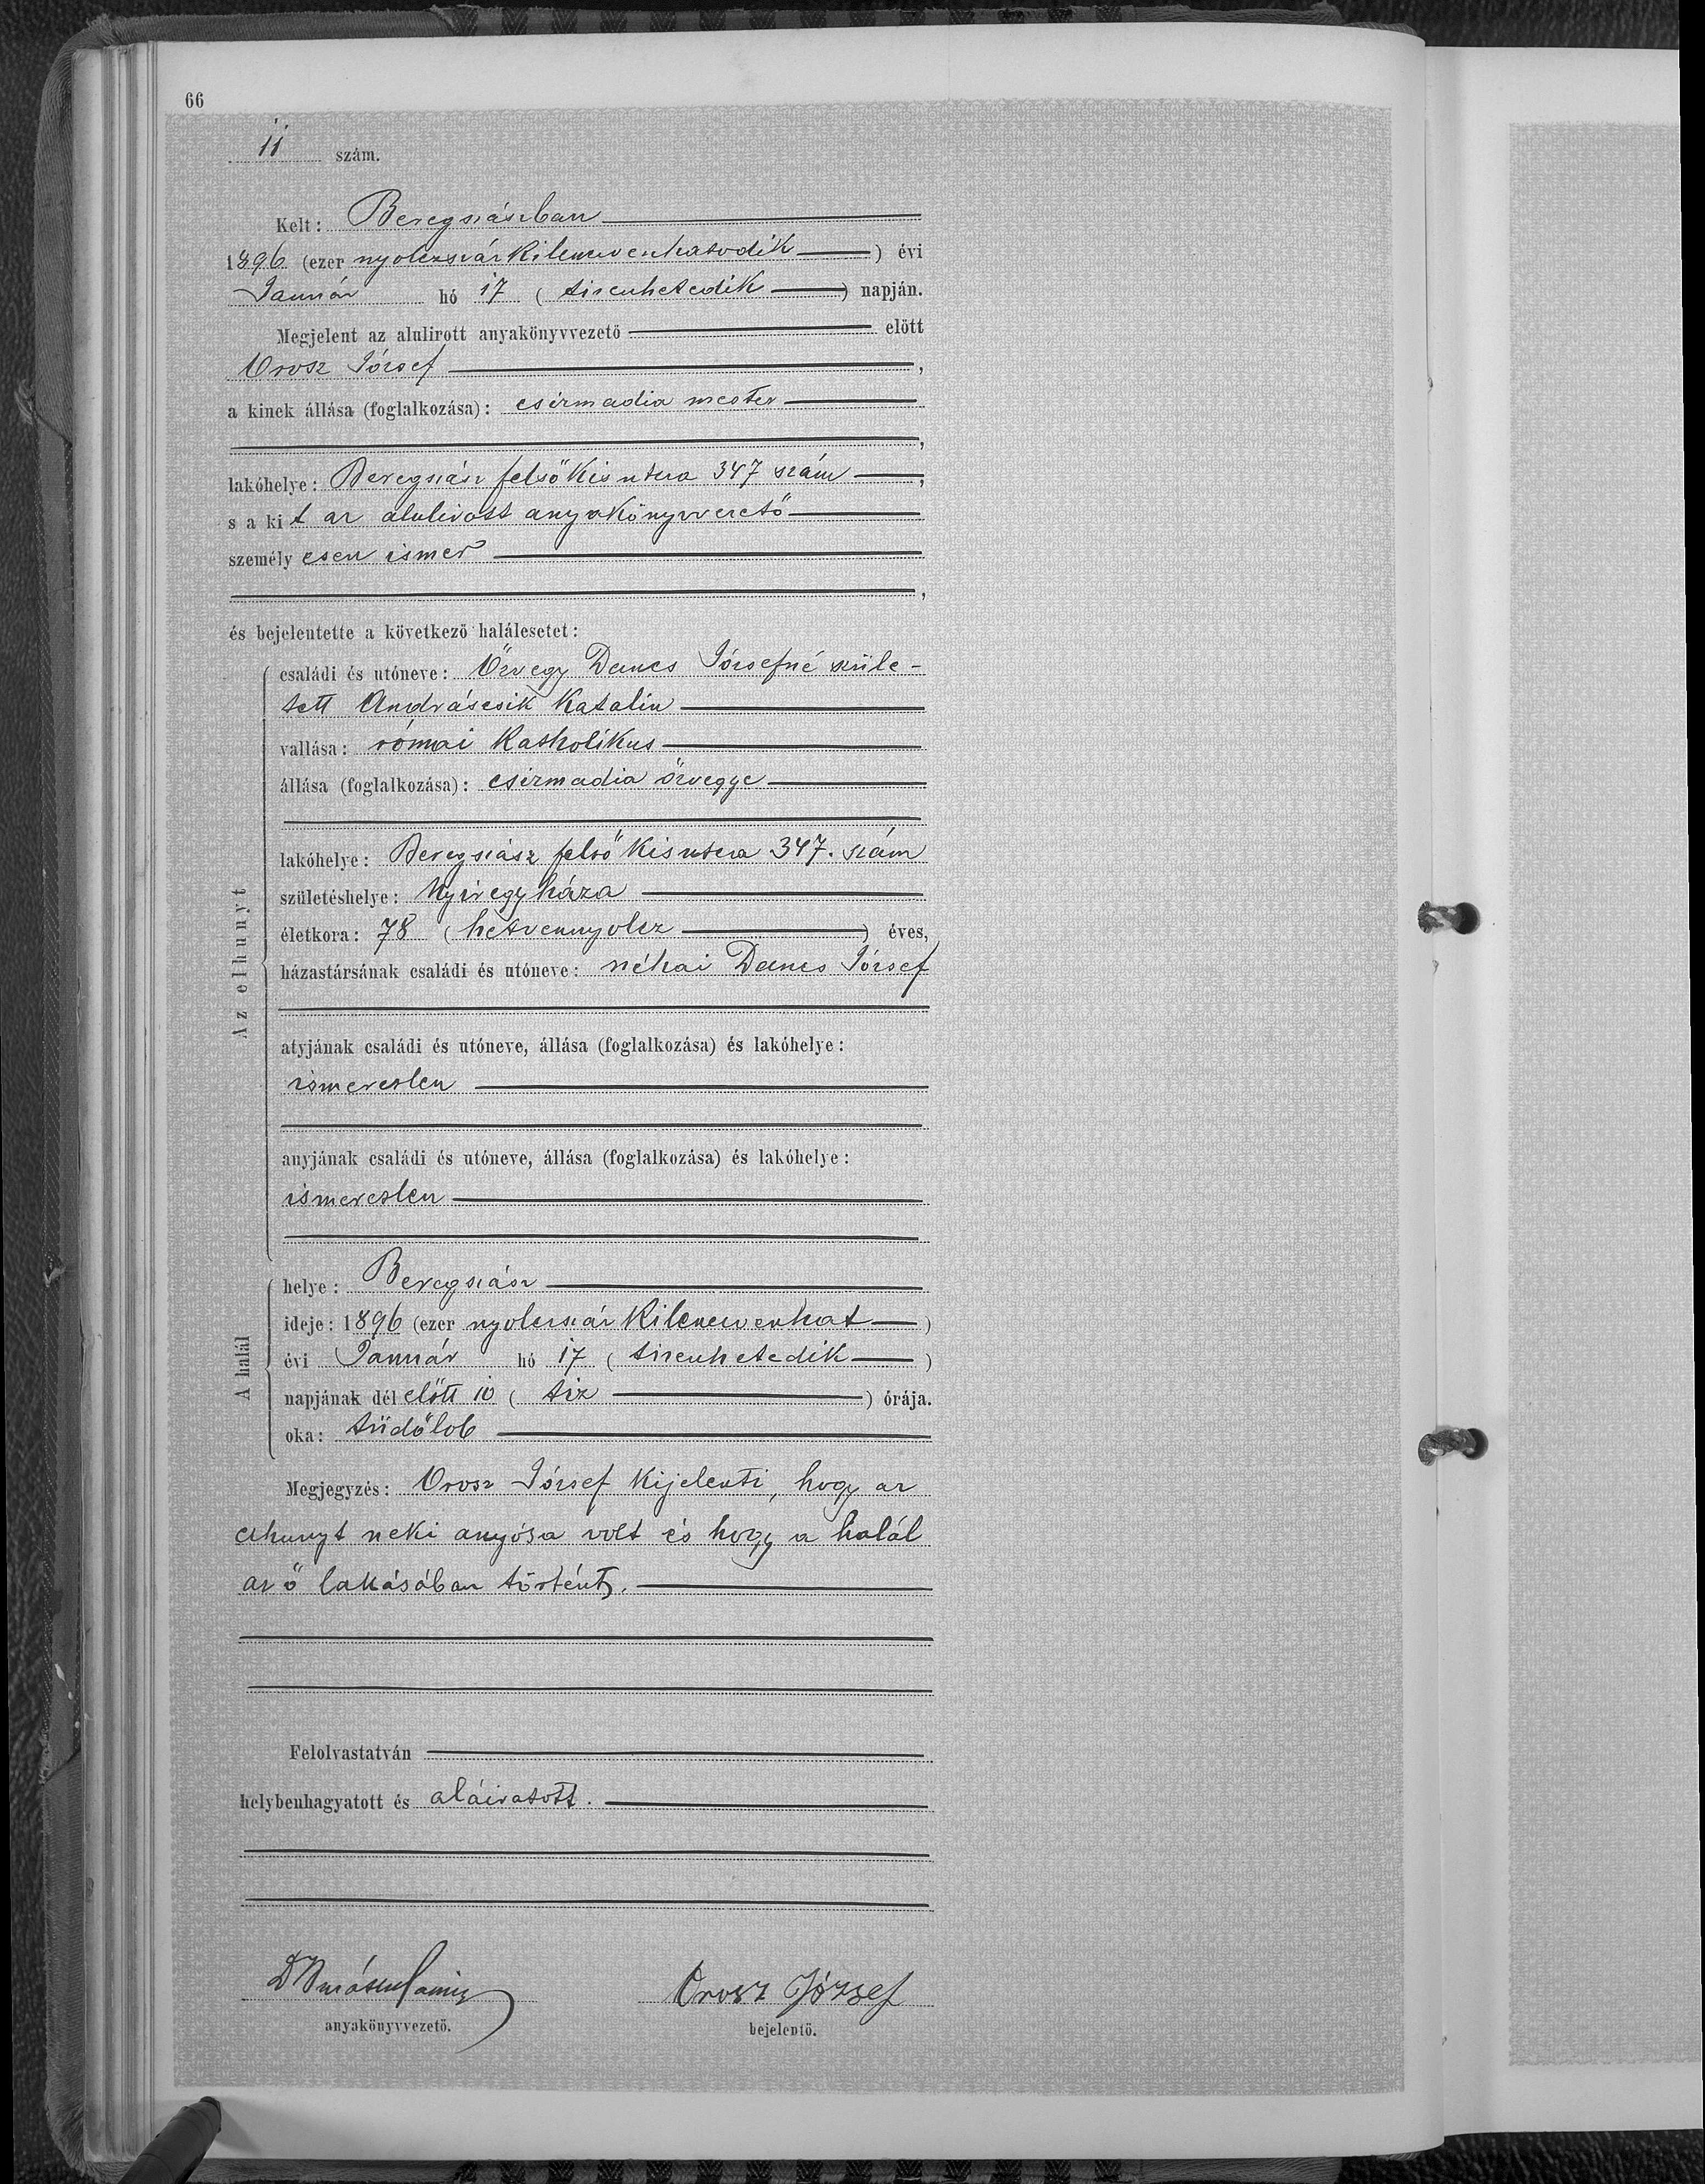 66
11 szám.
Kelt: Beregszászban
1896 (ezer nyolczszáz kilenczvenhatodik) évi
Január hó 17 (tizenhetedik) napján.
Megjelent az alulirott anyakönyvvezető előtt
Orosz József,
a kinek állása (foglalkozása): csizmadia mester
,
lakóhelye: Beregszász felső Kis utcza 347 szám,
s a kit az alulirott anyakönyvvezető
személyesen ismer
,
és bejelentette a következő halálesetet:
Az elhunyt
családi és utóneve: Özvegy Dancs Józsefné szüle-
tett Andráscsik Katalin
vallása: római Katholikus
állása (foglalkozása): csizmadia özvegye
lakóhelye: Beregszász felső Kis utcza 347. szám
születéshelye: Nyíregyháza
életkora: 78 (hetvennyolcz) éves,
házastársának családi és utóneve: néhai Dancs József
atyjának családi és utóneve, állása (foglalkozása) és lakóhelye:
ismeretlen
anyjának családi és utóneve, állása (foglalkozása) és lakóhelye:
ismeretlen
A halál
helye: Beregszász
ideje: 1896 (ezer nyolczszáz kilenczvenhat)
évi Január hó 17 (tizenhetedik)
napjának dél előtt 10 (tiz) órája.
oka: tüdőlob
Megjegyzés: Orosz József kijelenti, hogy az
elhunyt neki anyósa volt és hogy a halál
az ő lakásában történt.
Felolvastatván
helybenhagyatott és aláiratott.
Orosz József
anyakönyvvezető. bejelentő.